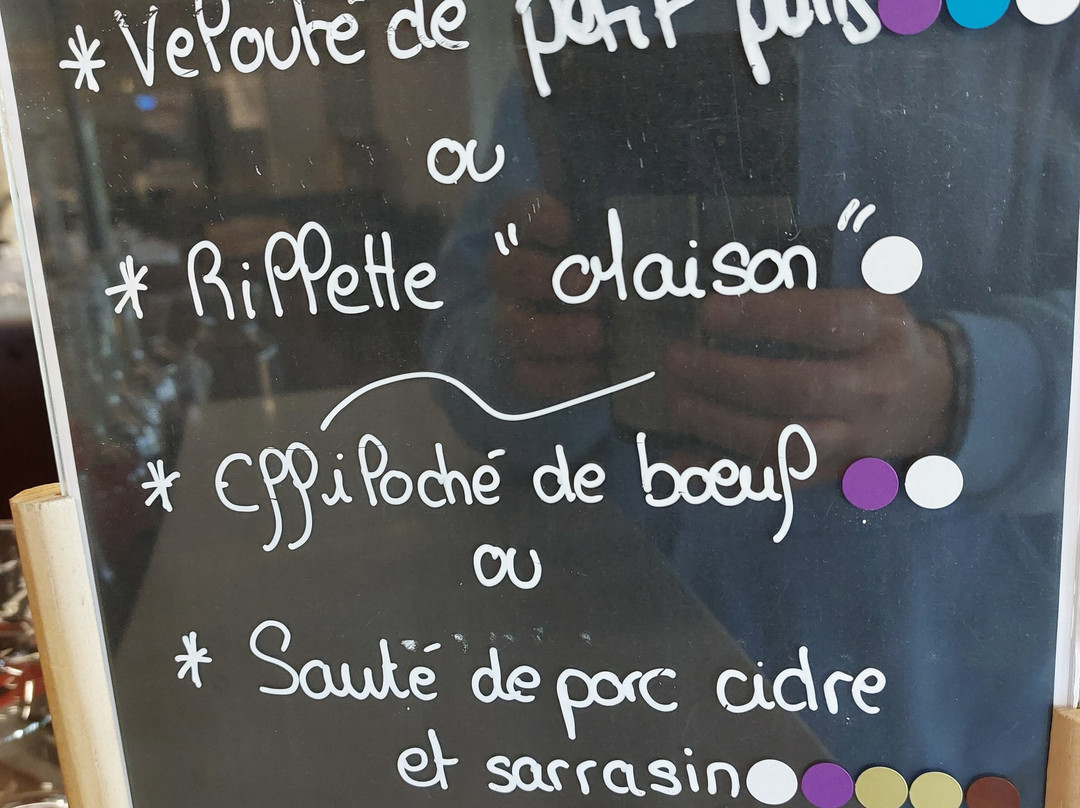 * Velouté de petit pois
ou
* Rillette "Maison"
* Effiloché de boeuf
ou
* Sauté de porc cidre
et sarrasin